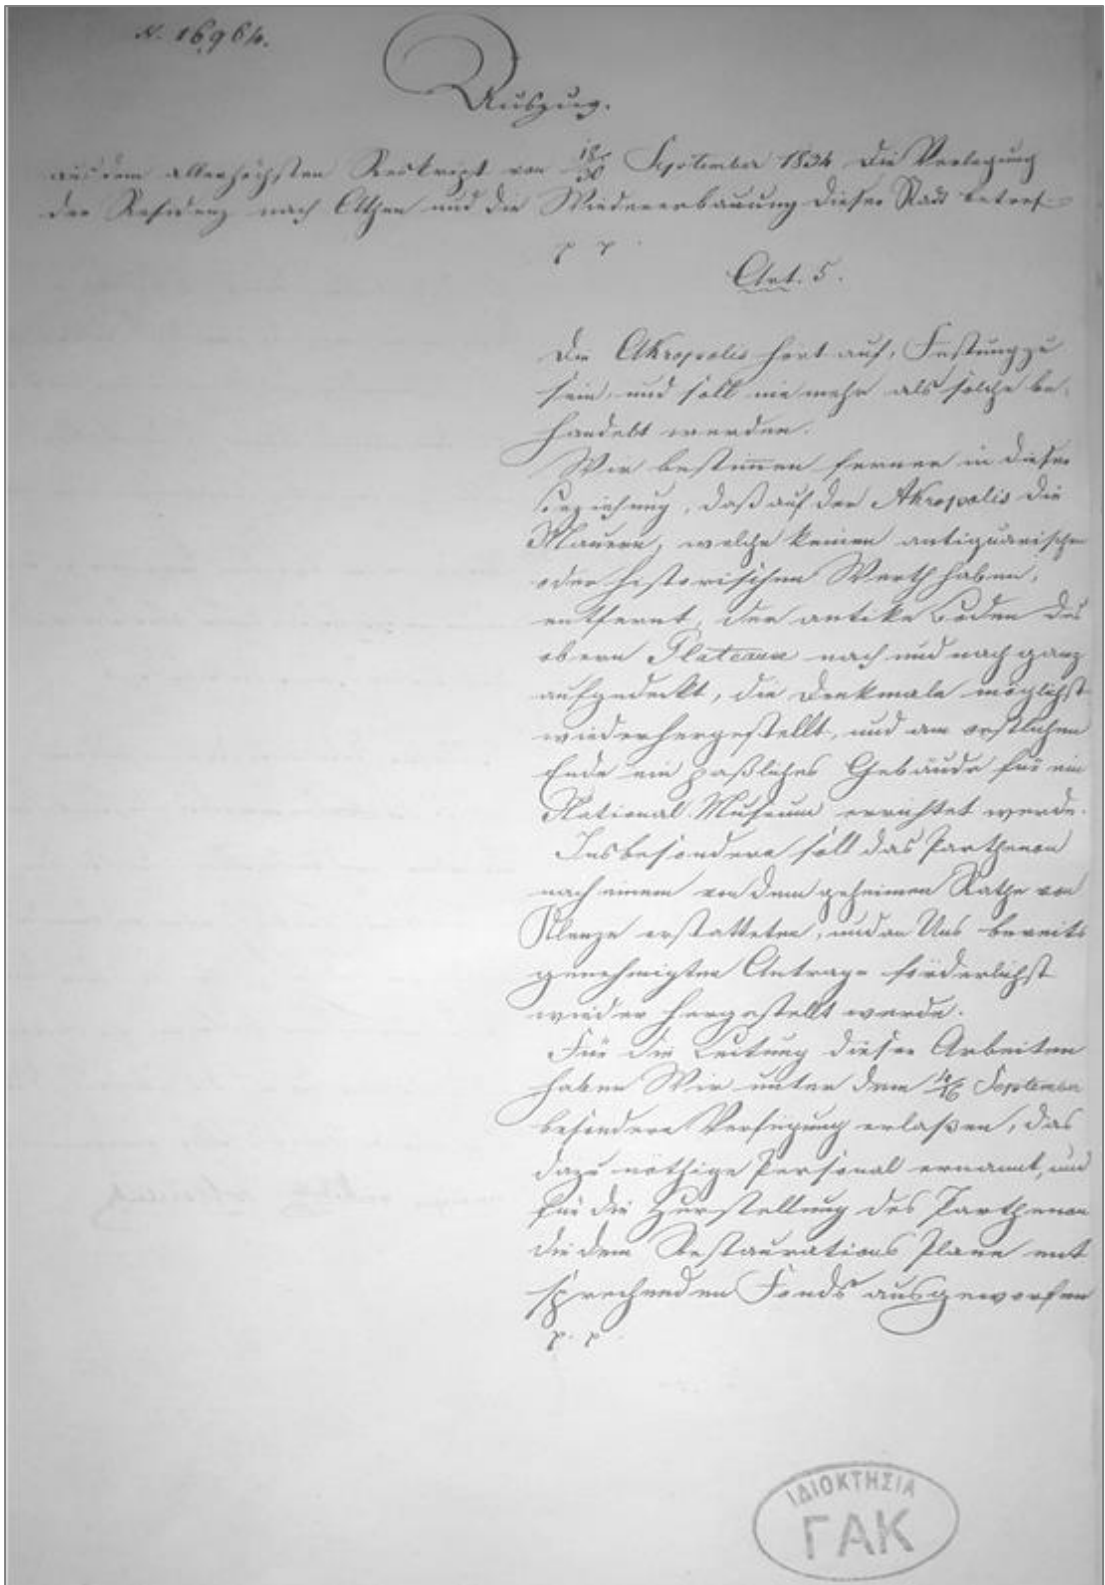 N. 16,964.
Auszug.
aus dem allerhöchsten Reskript von 18/30 September 1834 die Verlegung
der Residenz nach Athen und die Wiedererbauung dieser Stadt betref=
p p.
Art. 5.
Die Akropolis hört auf, Festung zu
sein, und soll nie mehr als solche be=
handelt werden.
Wir bestimmen ferner in dieser
Beziehung, daß auf der Akropolis die
Mauern, welche keinen antiquarischen
oder historischen Werth haben,
entfernt, der antike Boden des
obern Plateaux nach und nach ganz
aufgedeckt, die Denkmale möglichst
wiederhergestellt, und am östlichen
Ende ein paßliches Gebäude für ein
National Museum errichtet werde.
Insbesondere soll das Parthenon
nach einem von dem geheimen Rathe von
Klenze erstatteten, und von Uns bereits
genehmigten Antrage förderlichst
wieder hergestellt werde.
Für die Leitung dieser Arbeiten
haben Wir unter dem September
besondere Verfügung erlaßen, das
dazu nöthige Personal ernannt, und
für die Herstellung des Parthenon
die dem Restaurations Plane ent
sprechenden Fonds ausgeworfen
p. p.
ΙΔΙΟΚΤΗΣΙΑ
ΓΑΚ